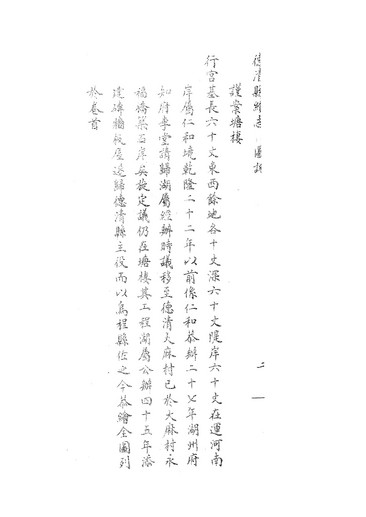 德清縣續志 圖說
二
謹案塘棲
行宮基長六十丈東西餘地各十丈深六十丈隄岸六十丈在運河南
岸屬仁和境乾隆二十二年以前係仁和恭辦二十七年湖州府
知府李堂請歸湖屬經辦時議移至德清大麻村已於大麻村永
福橋築石岸矣旋定議仍在塘棲其工程湖屬公辦四十五年添
造磚牆板屋遂歸德清縣主役而以烏程縣佐之今恭繪全圖列
於卷首